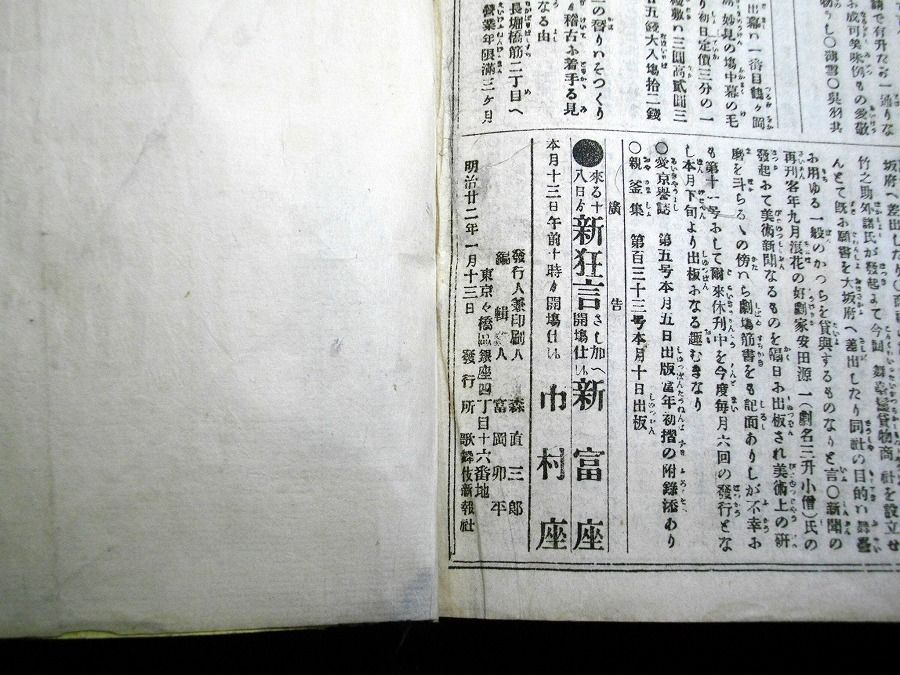 請で有升たお一通りな
お成可美味例もの愛敬
物もし〇薄雪〇呉羽共
出幕の一番目鶴ヶ岡
妙見の塲中幕の毛
り初日定價三分の一
棧敷の三圓高貳圓三
廿五錢大入塲拾二錢
二の替りハそつくり
稽古お着手る見
なる由
長堀橋筋二丁目へ
營業年限滿三ヶ月
坂府へ差出したり〇商
竹之助外諸氏が發起よて今回
んとて既お願書を大坂府へ差出したり同社の目的ハ
お用ゆる一般のかつらを貸與するものなりと言〇新聞の
再刊客年九月浪花の好劇家安田源一(劇名三升小僧)氏の
發起おて美術新聞なるものを隔日お出板され美術上の研
磨を斗らるゝの傍ら劇塲筋書をも記面ありしが不幸お
も第十一号おして爾來休刊中を今度毎月六回の發行とな
し本月下旬より出板おなる趣むきなり
〇愛京譽誌 第五号本月五日出版當年初摺の附錄添あり
〇親釜集 第百三十三号本月十日出版
廣告
●來る十八日ゟ新狂言さし加へ開塲仕候 新富座
本月十三日午前十時ゟ開塲仕候 市村座
發行人兼印刷人 森直三郎
編輯人 富岡卯平
東京々橋區銀座四丁目十六番地
發行所 歌舞伎新報社
明治廿二年一月十三日